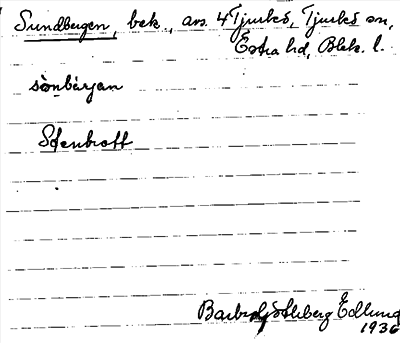 Sundbergen, bek., ars. 4 Tjurkö, Tjurkö sn,
Östra hd, Blek. l.
sònbärjan
Stenbrott
Barbro Söderberg Edlund
1936